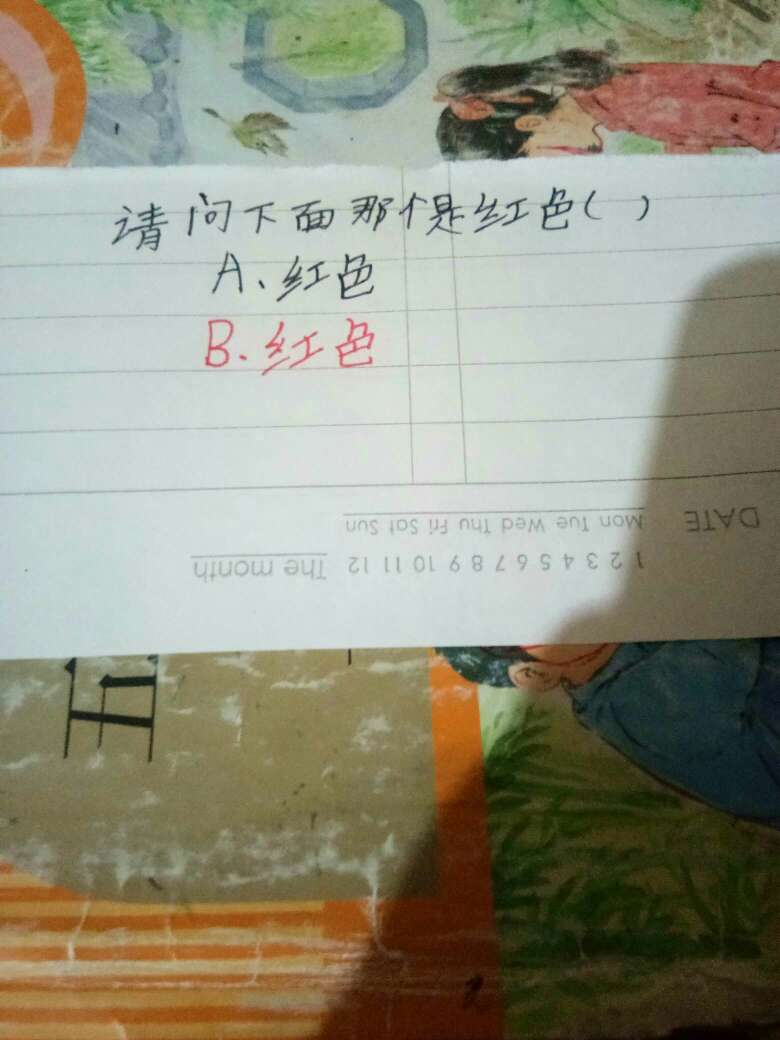 请问下面那个是红色( )
A、红色
B.红色
DATE Mon Tue Wed Thu Fri Sat Sun
1 2 3 4 5 6 7 8 9 10 11 12 The month
五